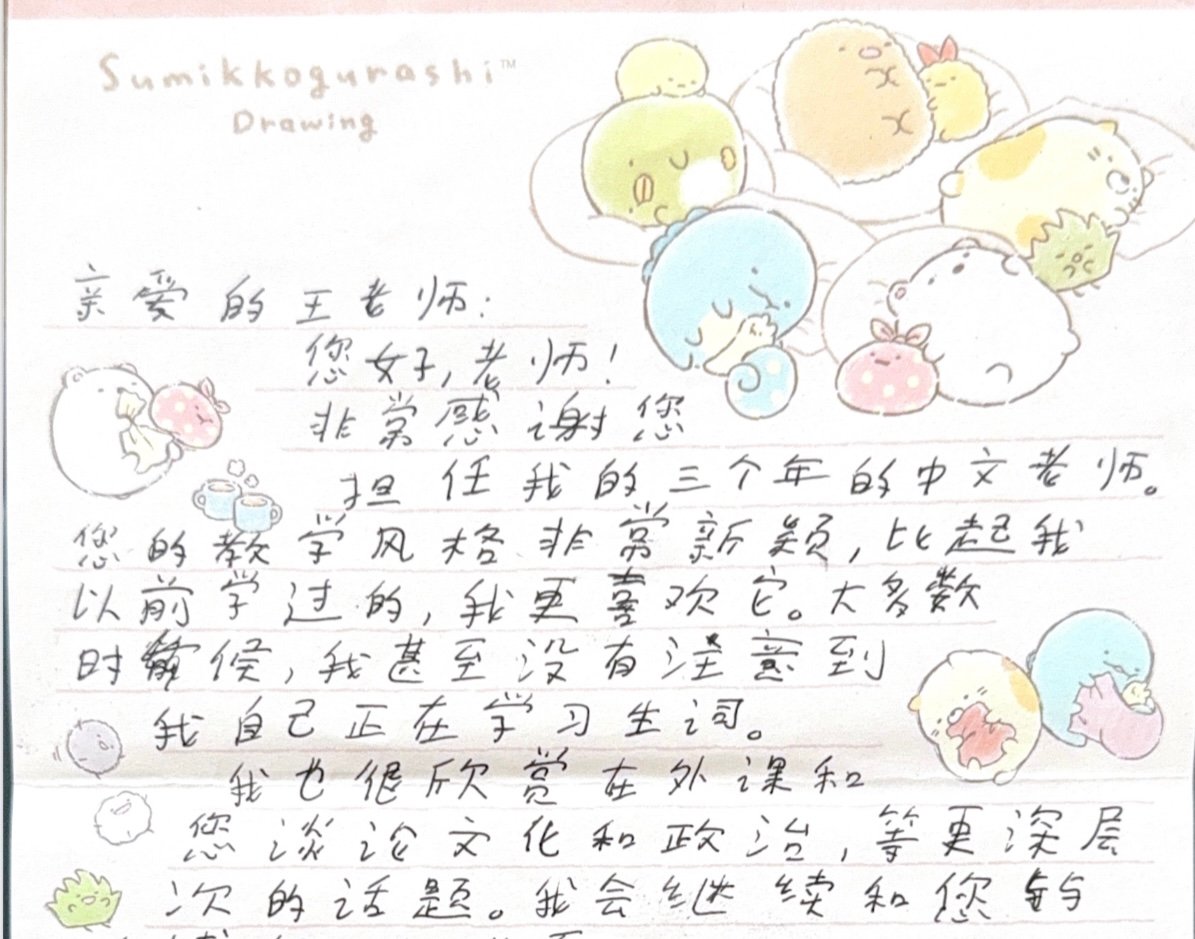 Sumikkogurashi™
Drawing
亲爱的王老师:
您好,老师!
非常感谢您
担任我的三个年的中文老师。
您的教学风格非常新颖,比起我
以前学过的,我更喜欢它。大多数
时候,我甚至没有注意到
我自己正在学习生词。
我也很欣赏在外课和
您谈论文化和政治,等更深层
次的话题。我会继续和您